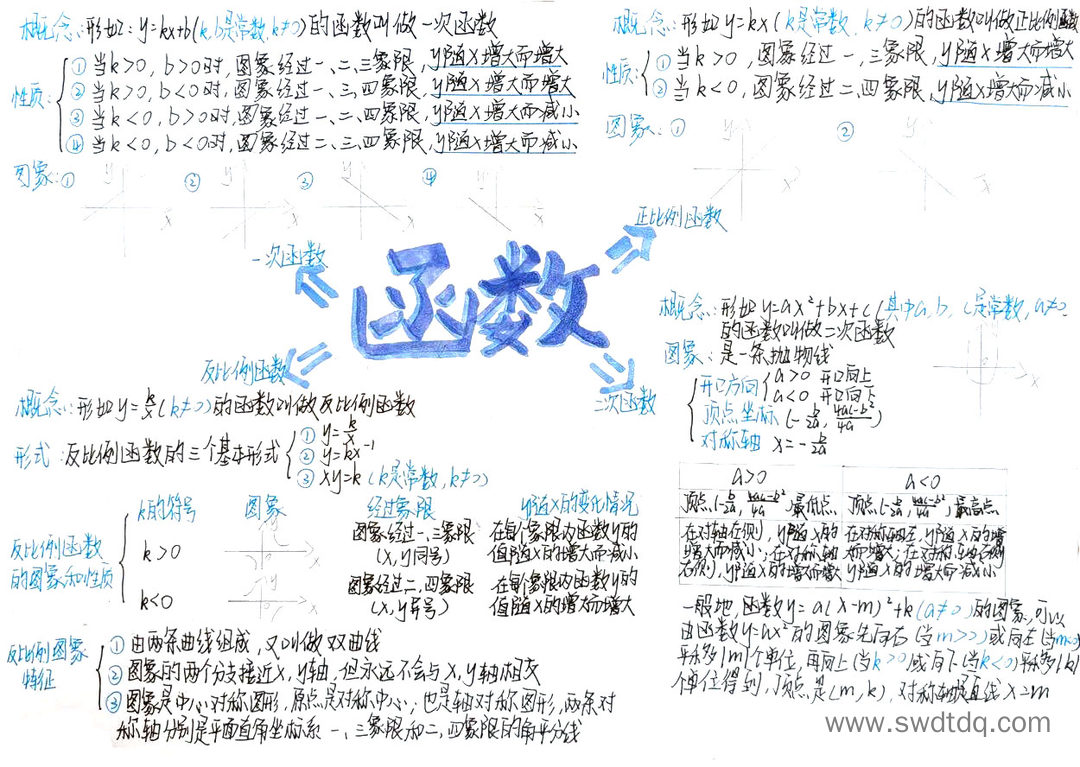 概念:形如:y=kx+b(k,b是常数,k≠0)的函数叫做一次函数
性质:
①当k>0,b>0时,图象经过一、二、三象限,y随x增大而增大
②当k>0,b<0时,图象经过一、三、四象限,y随x增大而增大
③当k<0,b>0时,图象经过一、二、四象限,y随x增大而减小
④当k<0,b<0时,图象经过二、三、四象限,y随x增大而减小
图象:① ② ③ ④
y y y y
x x x x
一次函数
概念:形如y=kx(k是常数,k≠0)的函数叫做正比例函数
性质:
①当k>0,图象经过一,三象限,y随x增大而增大
②当k<0,图象经过二、四象限,y随x增大而减小
图象:① ②
y y
x x
正比例函数
函数
反比例函数
概念:形如y=k/x(k≠0)的函数叫做反比例函数
形式:反比例函数的三个基本形式
①y=k/x
②y=kx⁻¹
③xy=k(k是常数,k≠0)
反比例函数
的图象和性质
k的符号 图象 经过象限 y随x的变化情况
k>0 图象经过一、三象限 在每个象限内函数y的
(x,y同号) 值随x的增大而减小
k<0 图象经过二,四象限 在每个象限内函数y的
(x,y异号) 值随x的增大而增大
反比例图象
特征
①由两条曲线组成,又叫做双曲线
②图象的两个分支接近x,y轴,但永远不会与x,y轴相交
③图象是中心对称图形,原点是对称中心;也是轴对称图形,两条对
称轴分别是平面直角坐标系一、三象限和二,四象限的角平分线
二次函数
概念:形如y=ax²+bx+c(其中a,b,c是常数,a≠0
的函数叫做二次函数
图象:是一条抛物线
开口方向
a>0 开口向上
a<0 开口向下
顶点坐标(-b/2a,4ac-b²/4a)
对称轴 x=-b/2a
a>0 a<0
顶点(-b/2a,4ac-b²/4a)最低点 顶点(-b/2a,4ac-b²/4a)最高点
在对轴左侧,y随x的 在对称轴左,y随x的增
增大而减小;在对称轴 大而增大;在对称轴右侧
右侧,y随x的增大而增大 y随x的增大而减小
一般地,函数y=a(x-m)²+k(a≠0)的图象,可以
由函数y=ax²的图象先向右(当m>0)或向左(当m<0)
平移|m|个单位,再向上(当k>0)或向下(当k<0)平移|k|
个单位得到,顶点是(m,k),对称轴是直线x=m
www.swdtdq.com